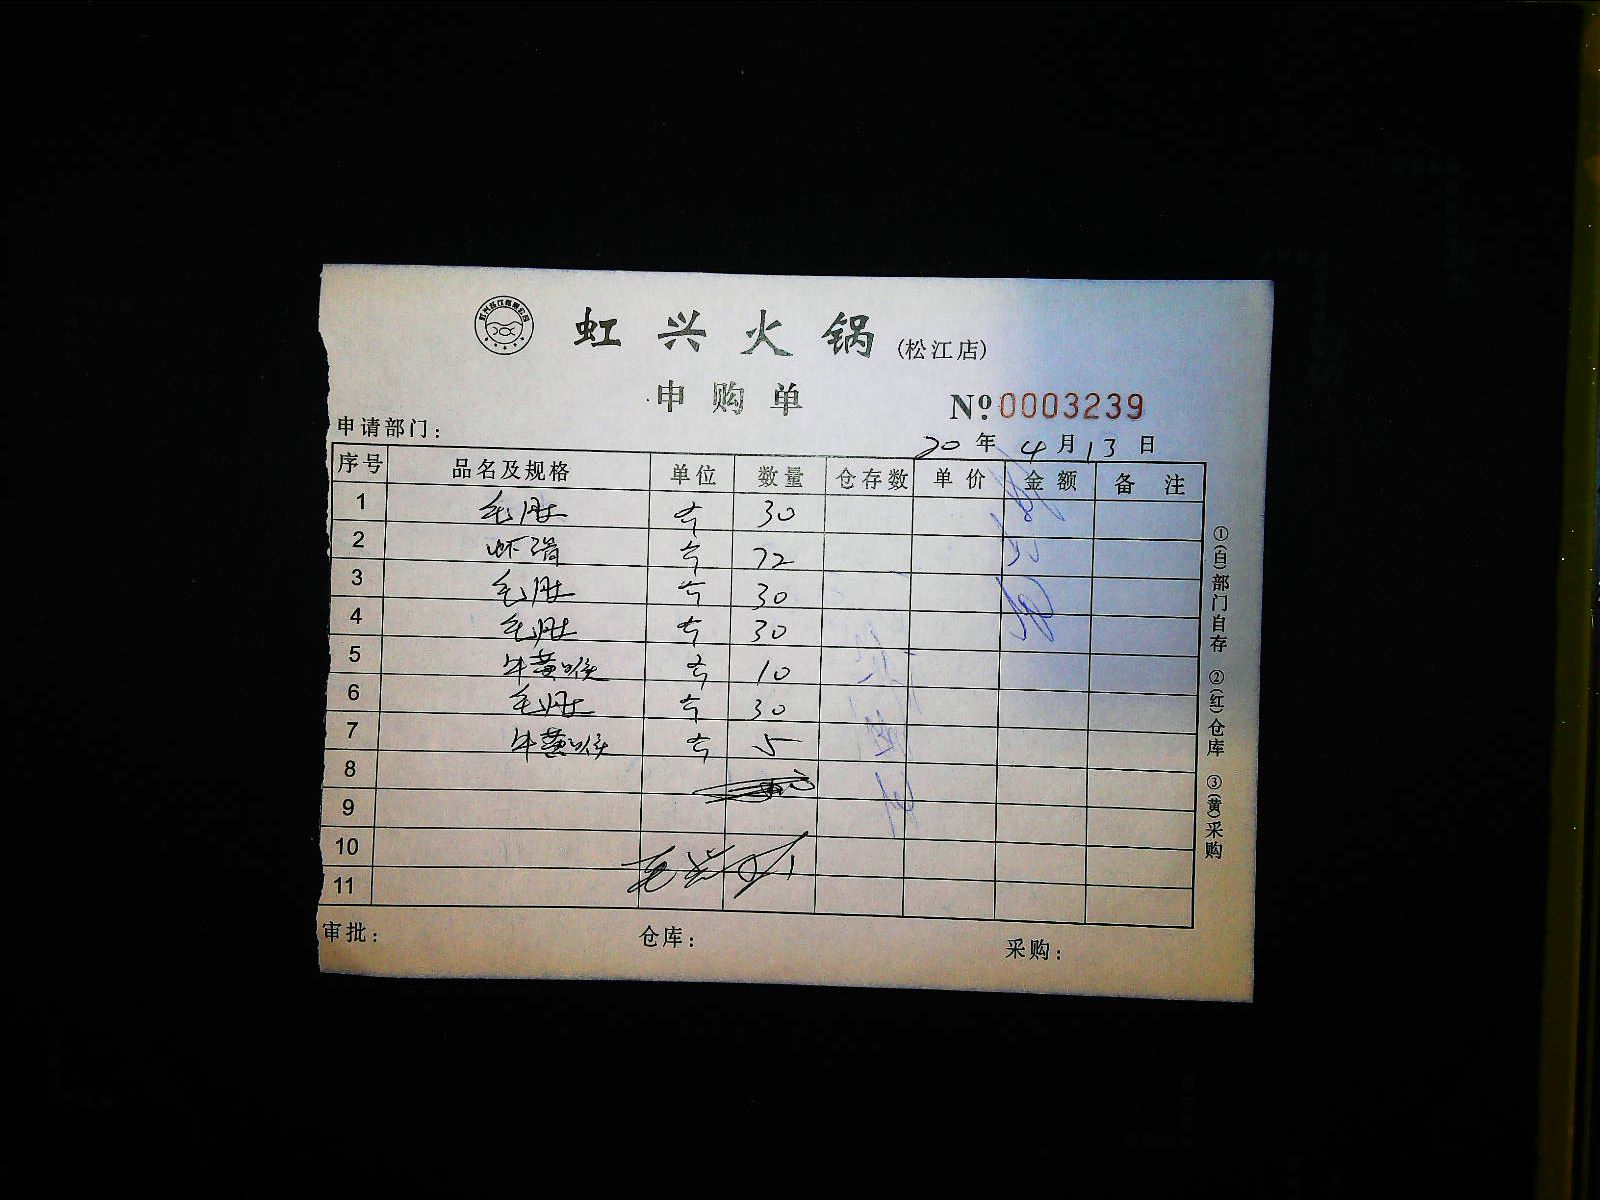 虹兴火锅 (松江店)
申购单 Nº 0003239
申请部门: 20年4月13日
序号 品名及规格 单位 数量 仓存数 单价 金额 备注
1 毛肚 斤 30
2 虾滑 斤 72
3 毛肚 斤 30
4 毛肚 斤 30
5 牛黄喉 斤 10
6 毛肚 斤 30
7 牛黄喉 斤 5
8
9
10
11
审批: 仓库: 采购:
①(白)部门自存 ②(红)仓库 ③(黄)采购